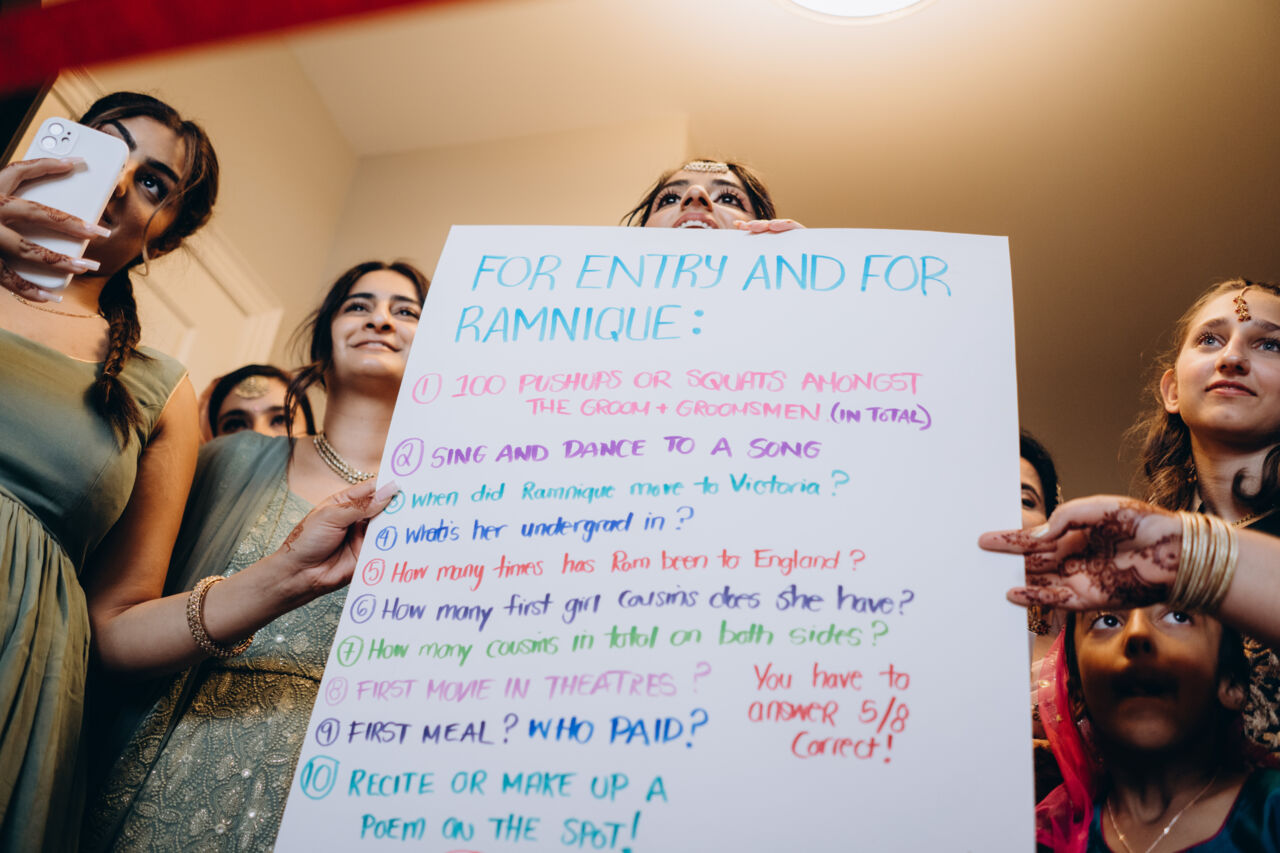 FOR ENTRY AND FOR
RAMNIQUE:
① 100 PUSHUPS OR SQUATS AMONGST
THE GROOM + GROOMSMEN (IN TOTAL)
② SING AND DANCE TO A SONG
③ When did Ramnique move to Victoria?
④ What's her undergrad in?
⑤ How many times has Ram been to England?
⑥ How many first girl cousins does she have?
⑦ How many cousins in total on both sides?
⑧ FIRST MOVIE IN THEATRES?
⑨ FIRST MEAL? WHO PAID?
⑩ RECITE OR MAKE UP A
POEM ON THE SPOT!
You have to
answer 5/8
Correct!